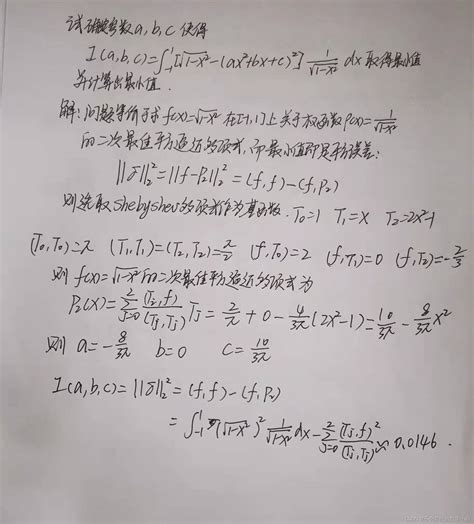 试确定参数a,b,c使得
I(a,b,c)=∫₋₁¹[√1-x²-(ax²+bx+c)²] 1/√1-x² dx 取得最小值
并计算出最小值.
解:问题等价于求f(x)=√1-x² 在[-1,1]上关于权函数ρ(x)=1/√1-x²
的二次最佳平方逼近多项式,而最小值即是平方误差:
||δ||₂²=||f-P₂||₂²=(f,f)-(f,P₂)
则选取Shebyshev多项式作为基函数. T₀=1 T₁=x T₂=2x²-1
(T₀,T₀)=π (T₁,T₁)=(T₂,T₂)=π/2 (f,T₀)=2 (f,T₁)=0 (f,T₂)=-2/3
则f(x)=√1-x²的二次最佳平方逼近多项式为
P₂(x)=Σ²ⱼ₌₀ (Tⱼ,f)/(Tⱼ,Tⱼ) Tⱼ=2/π+0-4/3π(2x²-1)=10/3π-8/3π x²
则 a=-8/3π b=0 c=10/3π
I(a,b,c)=||δ||₂²=(f,f)-(f,P₂)
=∫₋₁¹(√1-x²)² 1/√1-x² dx-Σ²ⱼ₌₀ (Tⱼ,f)²/(Tⱼ,Tⱼ)≈0.0146.